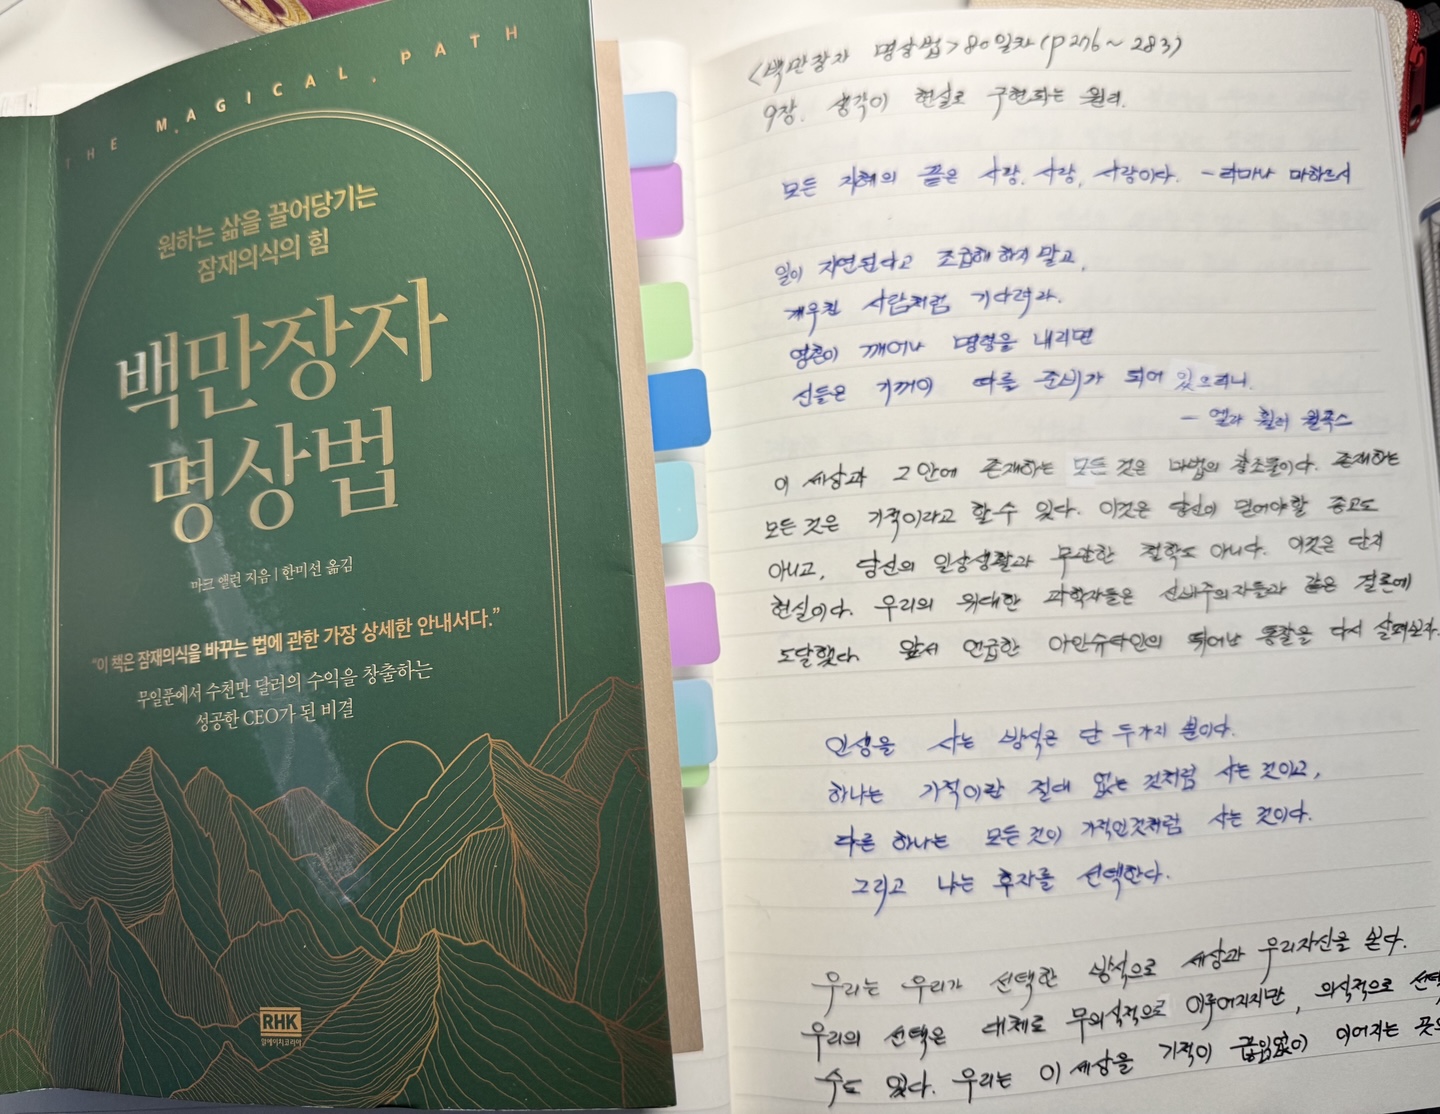 THE MAGICAL PATH
원하는 삶을 끌어당기는
잠재의식의 힘
백만장자
명상법
마크 앨런 지음 | 한미선 옮김
“이 책은 잠재의식을 바꾸는 법에 관한 가장 상세한 안내서다.”
무일푼에서 수천만 달러의 수익을 창출하는
성공한 CEO가 된 비결
RHK
알에이치코리아
<백만장자 명상법> 80일차 (p276~283)
9장. 생각이 현실로 구현되는 원리.
모든 지혜의 끝은 사랑, 사랑, 사랑이다. - 라마나 마하르시
일이 지연된다고 조급해 하지 말고,
깨우친 사람처럼 기다려라.
영혼이 깨어나 명령을 내리면
신들은 기꺼이 따를 준비가 되어 있으리니.
- 엘라 휠러 윌콕스
이 세상과 그 안에 존재하는 모든 것은 마법의 창조물이다. 존재하는
모든 것은 기적이라고 할 수 있다. 이것은 당신이 믿어야할 종교도
아니고, 당신의 일상생활과 무관한 철학도 아니다. 이것은 단지
현실이다. 우리의 위대한 과학자들은 신비주의자들과 같은 결론에
도달했다. 앞서 언급한 아인슈타인의 뛰어난 통찰을 다시 살펴보자.
인생을 사는 방식은 단 두가지 뿐이다.
하나는 기적이란 절대 없는 것처럼 사는 것이고,
다른 하나는 모든 것이 기적인것처럼 사는 것이다.
그리고 나는 후자를 선택한다.
우리는 우리가 선택한 방식으로 세상과 우리자신을 본다.
우리의 선택은 대체로 무의식적으로 이루어지지만, 의식적으로 선택
수도 있다. 우리는 이 세상을 기적이 끊임없이 이어지는 곳으